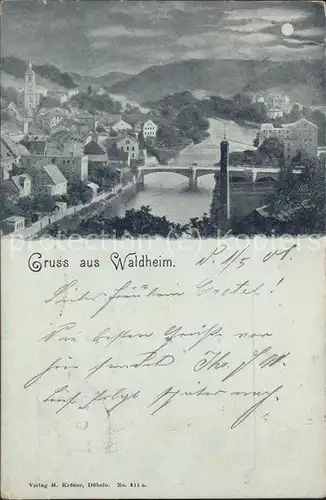 Gruss aus Waldheim.
1/5 01.
Liebes Fräulein Gretel!
Die besten Grüße von
hier sendet Ihr
Brief folgt später nach.
Verlag H. Krämer, Döbeln. No. 411 a.